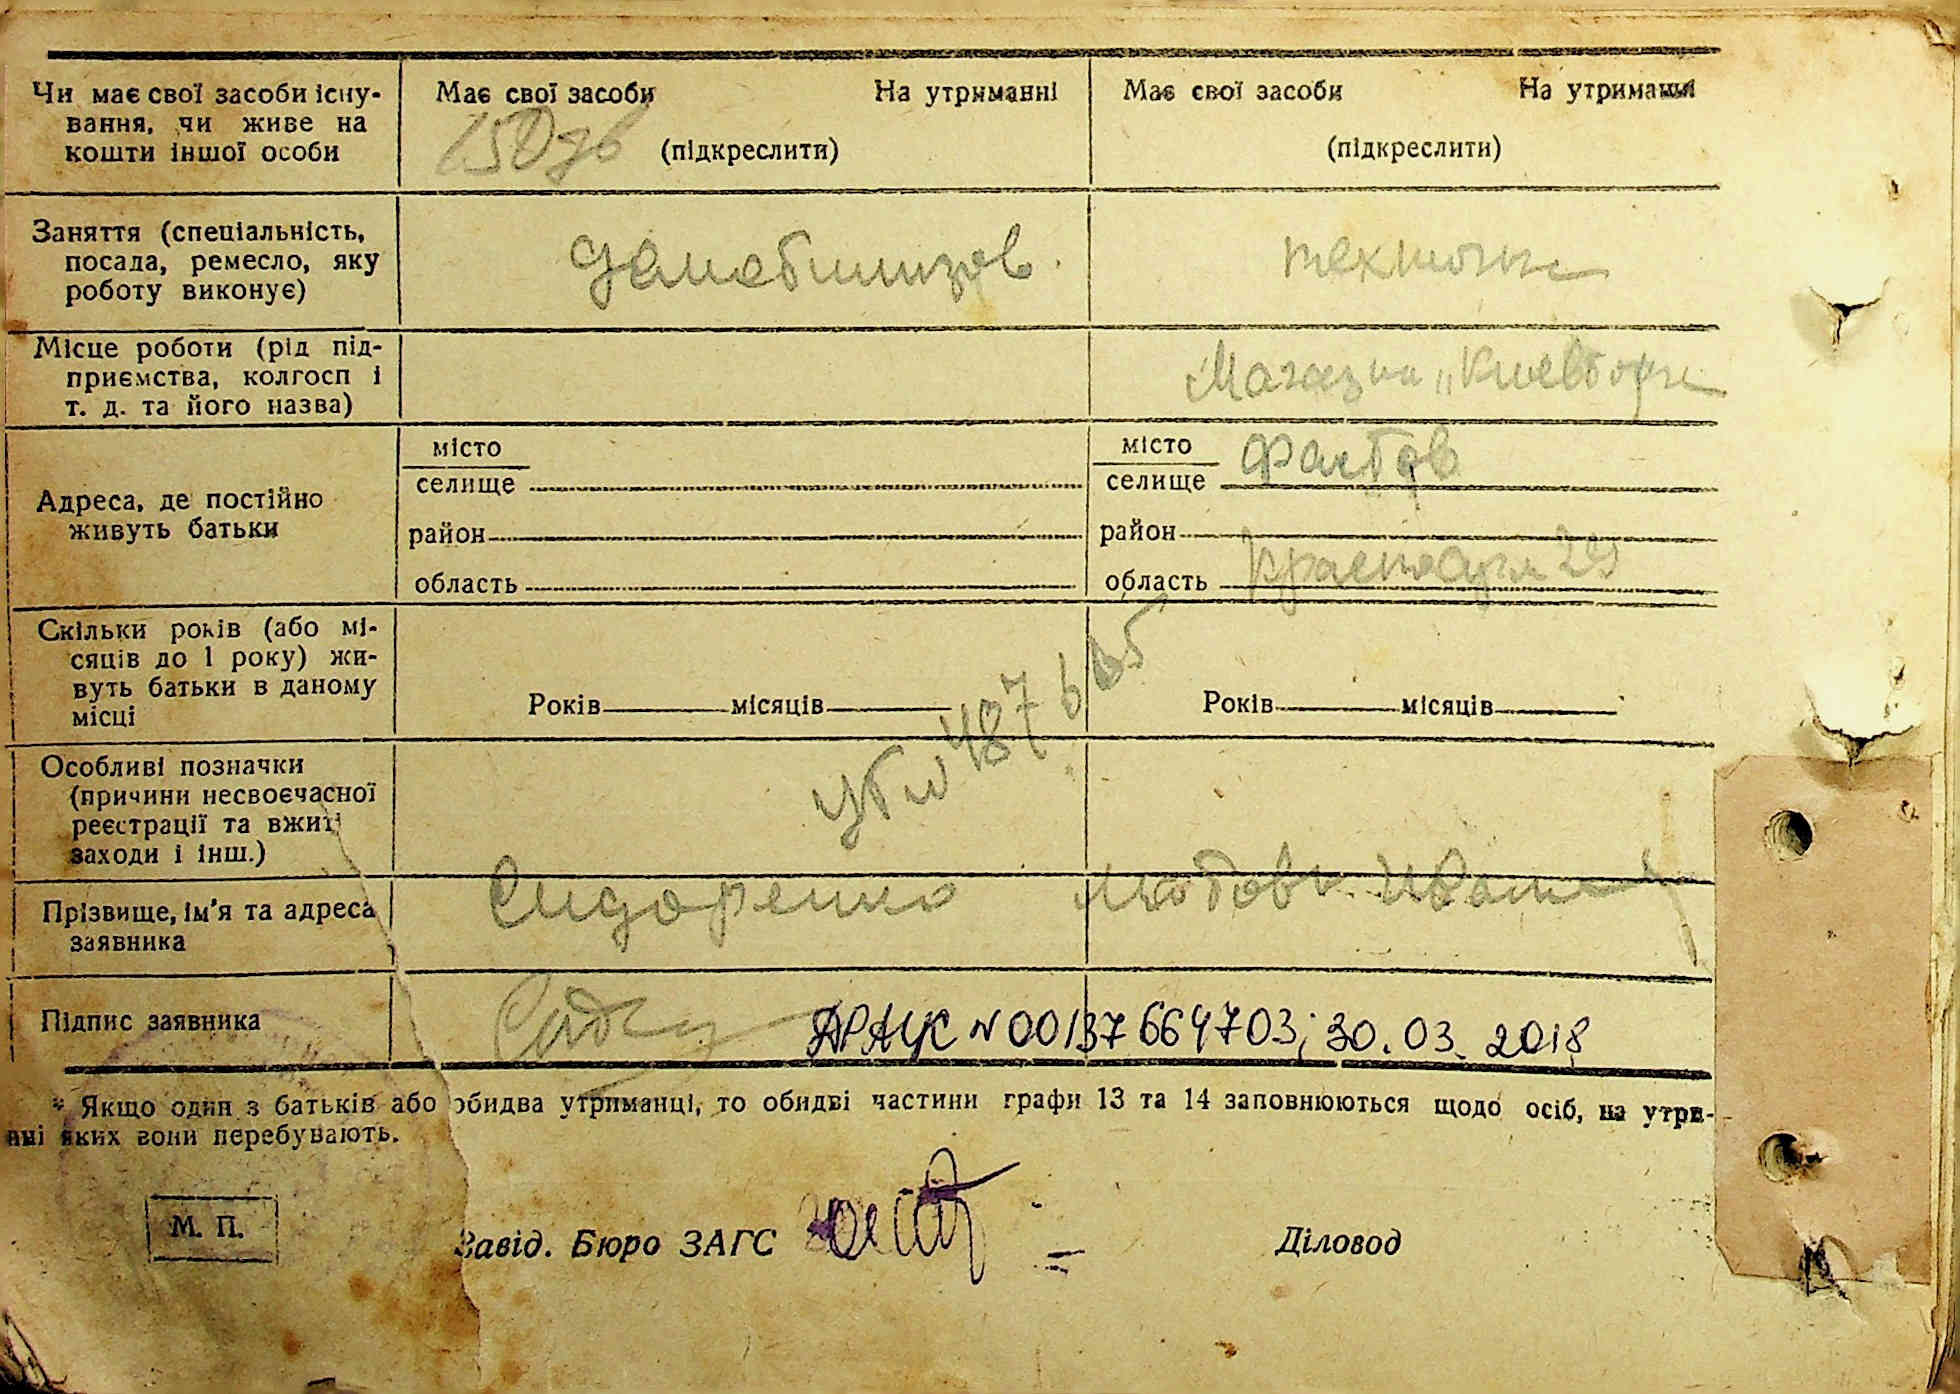 Чи має свої засоби існу-
вання, чи живе на
кошти іншої особи
Має свої засоби На утриманні
(підкреслити)
Має свої засоби На утриманні
(підкреслити)
Заняття (спеціальність,
посада, ремесло, яку
роботу виконує)
демобилизов.
Місце роботи (рід під-
приємства, колгосп і
т. д. та його назва)
Магазин „Киевторг
Адреса, де постійно
живуть батьки
місто
селище
район
область
місто Фастов
селище
район
область
Скільки років (або мі-
сяців до 1 року) жи-
вуть батьки в даному
місці
Років місяців
Років місяців
Особливі позначки
(причини несвоєчасної
реєстрації та вжиті
заходи і інш.)
Прізвище, ім'я та адреса
заявника
Сидоренко Любовь Иван
Підпис заявника
ДРАЦС N 00137664703; 30.03.2018
* Якщо один з батьків або обидва утриманці, то обидві частини графи 13 та 14 заповнюються щодо осіб, на утри-
нні яких вони перебувають.
М. П.
Завід. Бюро ЗАГС
Діловод